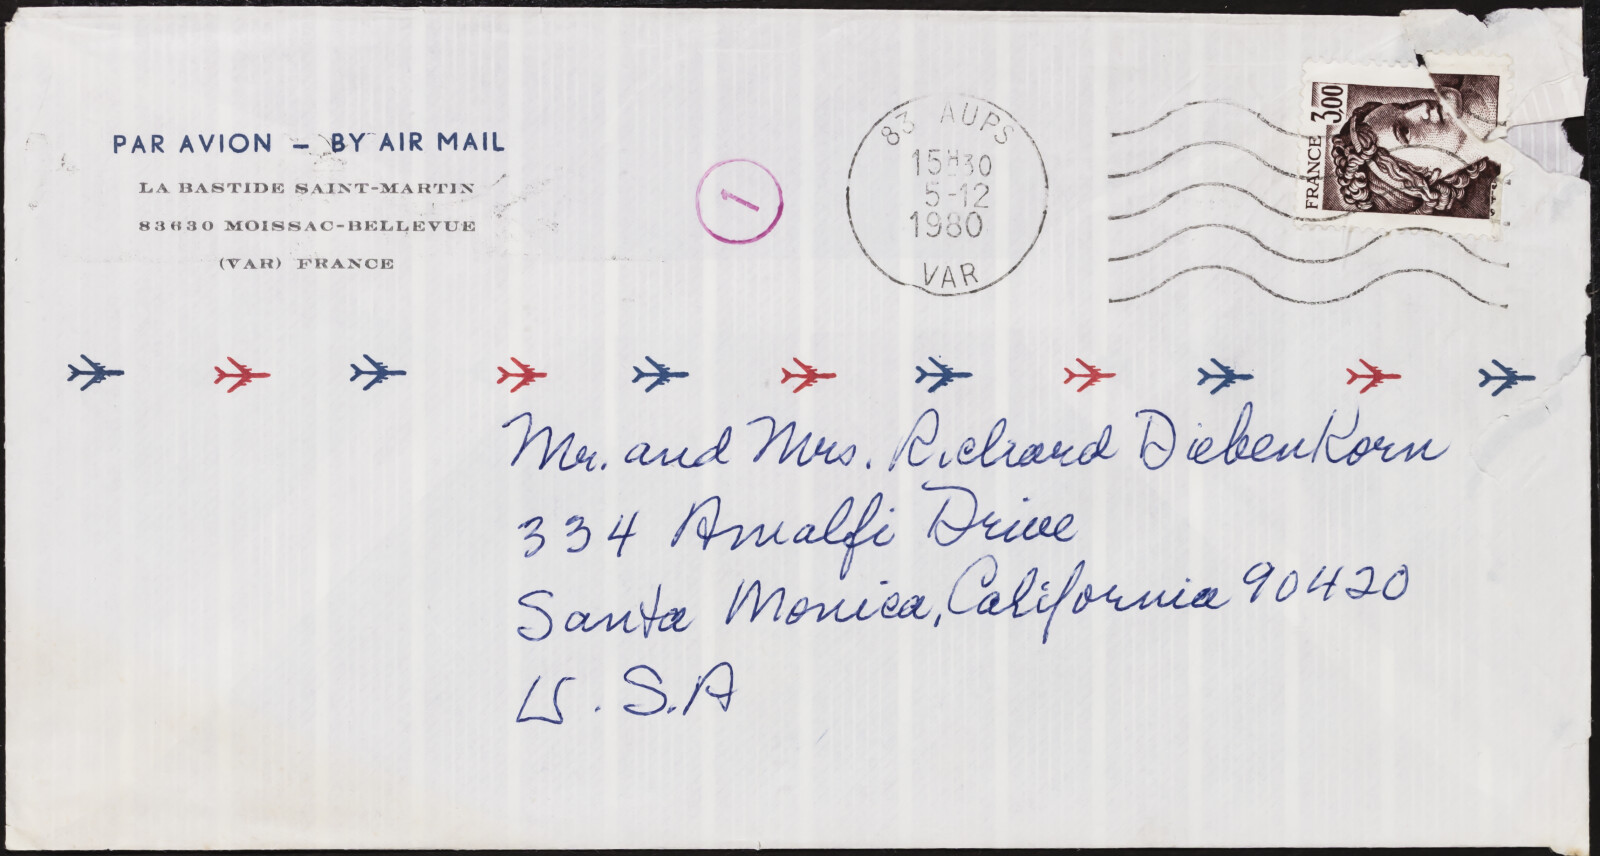 PAR AVION – BY AIR MAIL
LA BASTIDE SAINT-MARTIN
83630 MOISSAC-BELLEVUE
(VAR) FRANCE
1
83 AUPS
15H30
5-12
1980
VAR
FRANCE 3.00
Mr. and Mrs. Richard DiebenKorn
334 Amalfi Drive
Santa Monica, California 90420
U. S. A